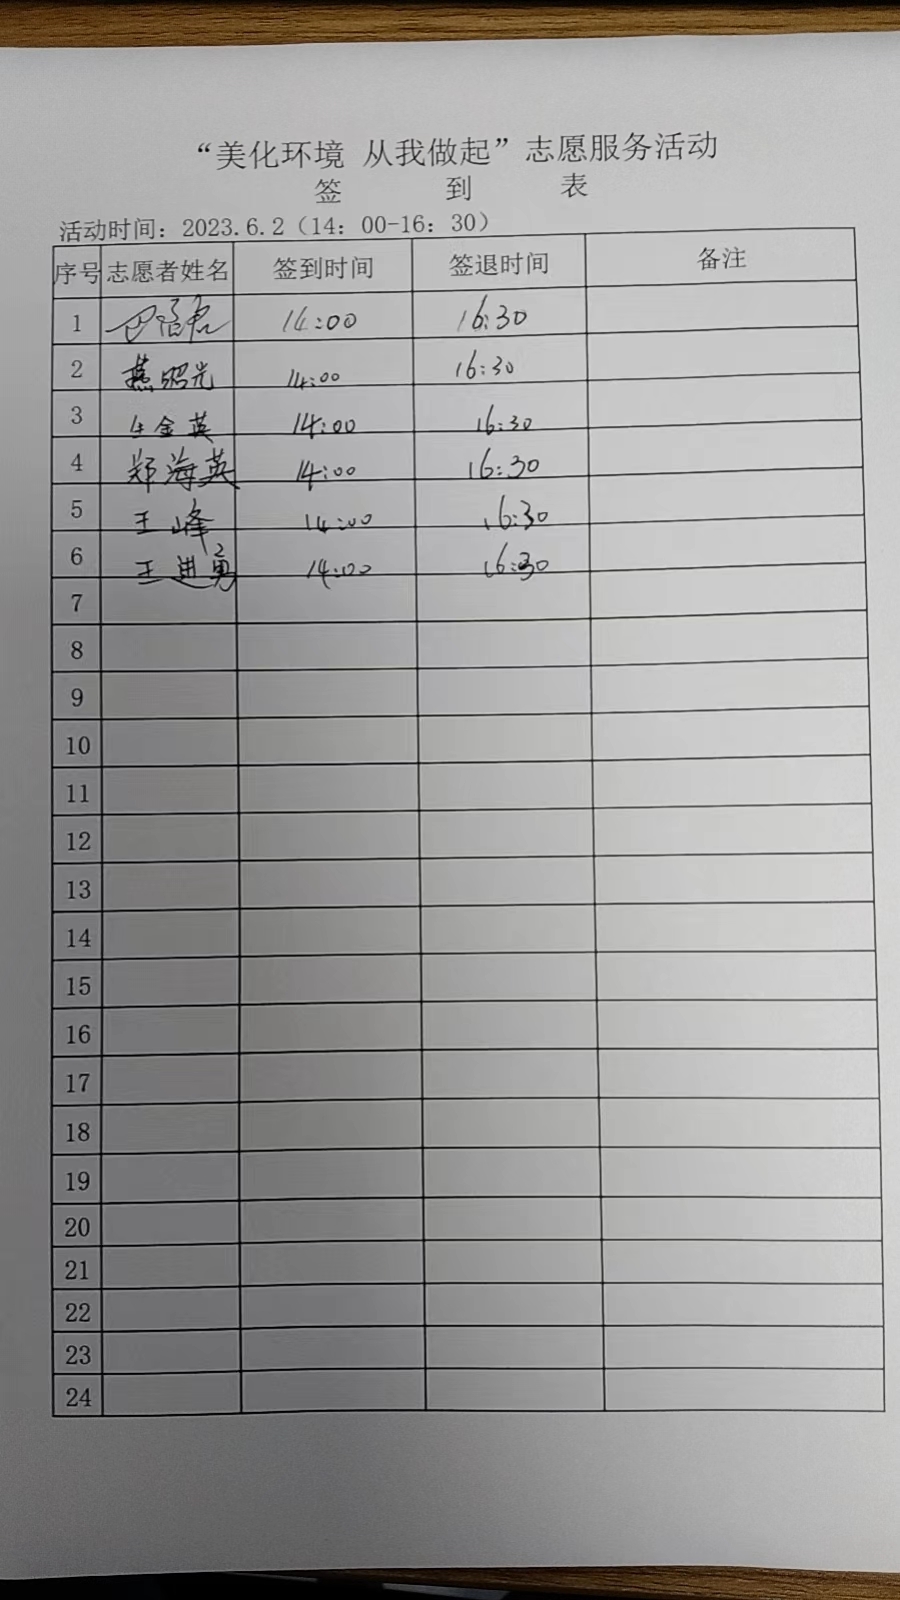 “美化环境 从我做起”志愿服务活动
签 到 表
活动时间：2023.6.2（14：00-16：30）
序号 志愿者姓名 签到时间 签退时间 备注
1 14:00 16:30
2 燕昭光 14:00 16:30
3 金英 14:00 16:30
4 郑海英 14:00 16:30
5 王峰 14:00 16:30
6 王进勇 14:00 16:30
7
8
9
10
11
12
13
14
15
16
17
18
19
20
21
22
23
24